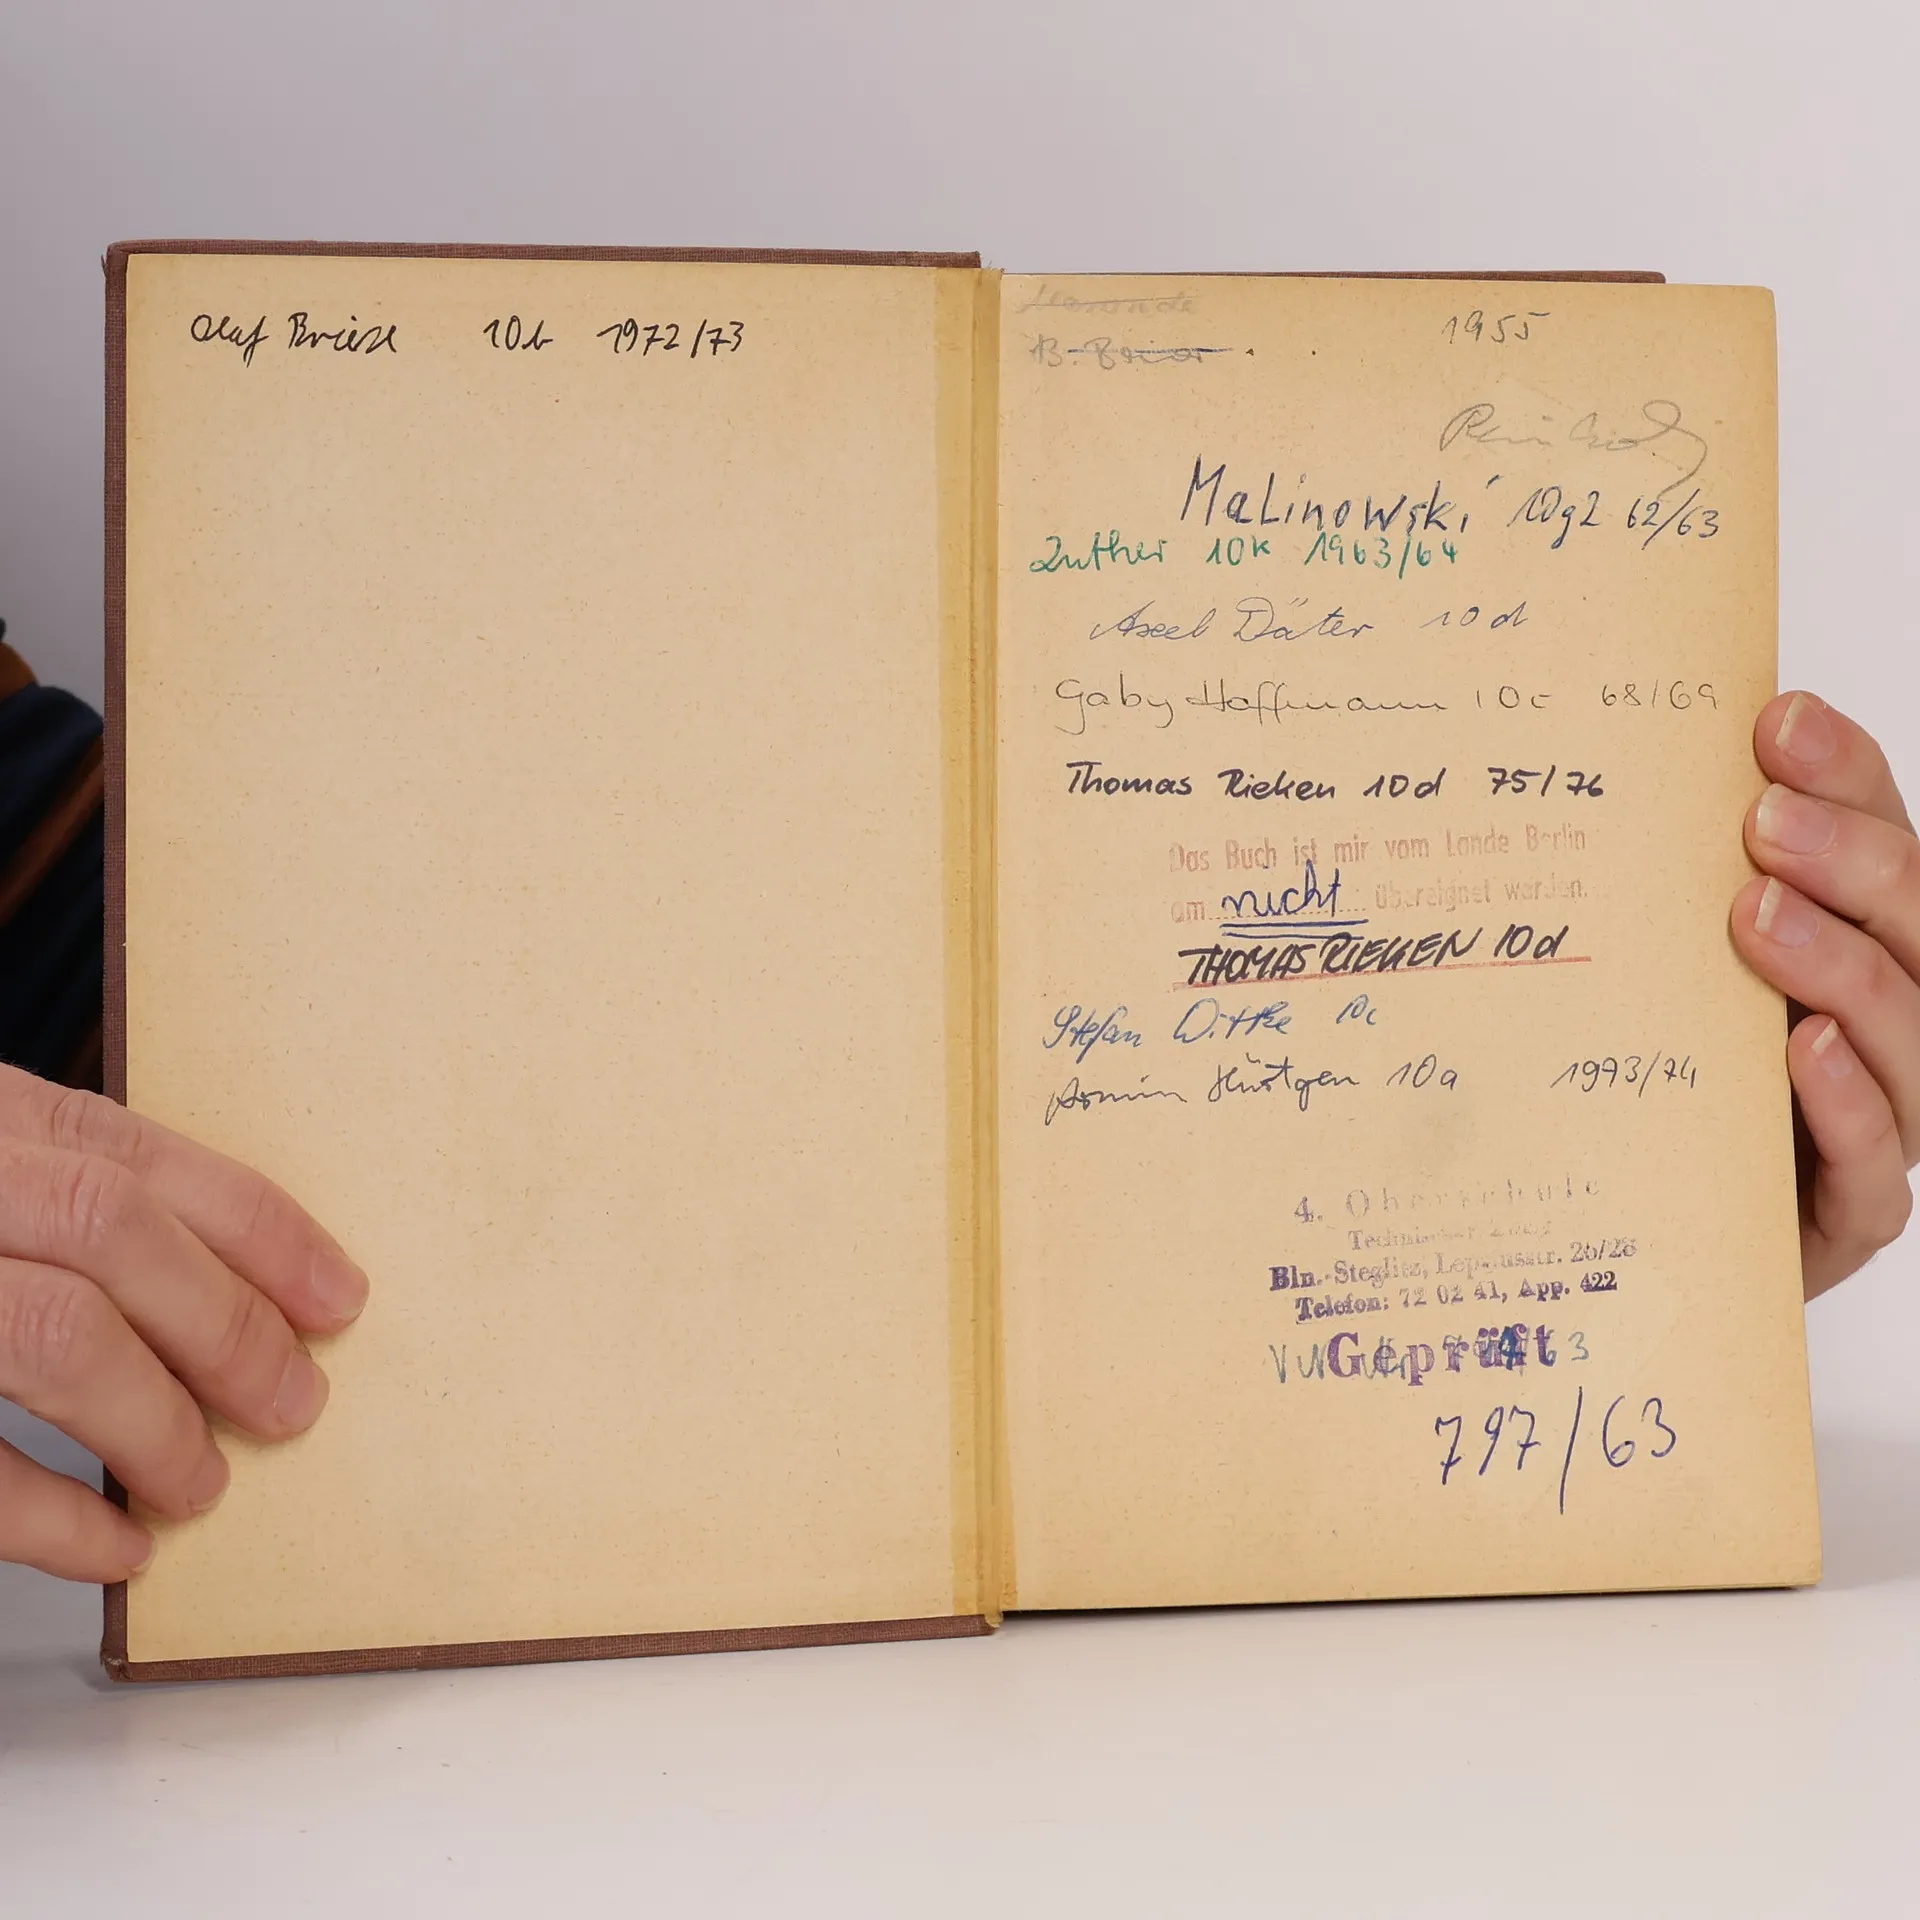 Olaf Briese 10b 1972/73
1955
B.
Malinowski 10g2 62/63
Zuther 10k 1963/64
Axel Däter 10d
Gaby Hoffmann 10c 68/69
Thomas Rieken 10d 75/76
Das Buch ist mir vom Lande Berlin
am nicht übereignet worden.
THOMAS RIEKEN 10d
Stefan Wittke 10c
Armin Hüstgen 10a 1973/74
4. Oberschule
Technischer Zweig
Bln.-Steglitz, Lepsiusstr. 26/28
Telefon: 72 02 41, App. 422
Geprüft
797/63